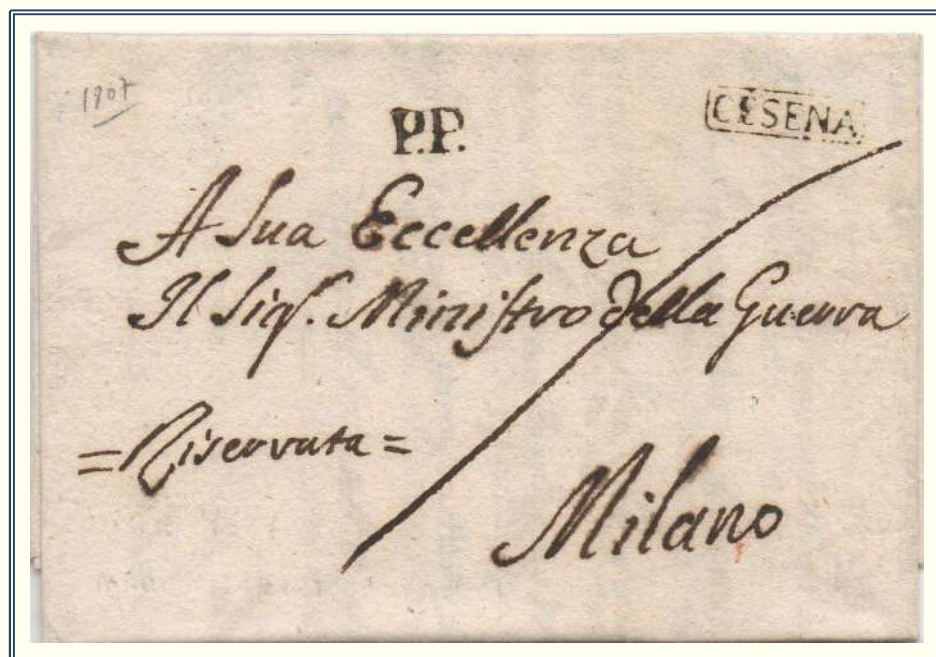 1807
P.P.
CESENA
A Sua Eccellenza
Il Sigr. Ministro della Guerra
=Riservata=
Milano